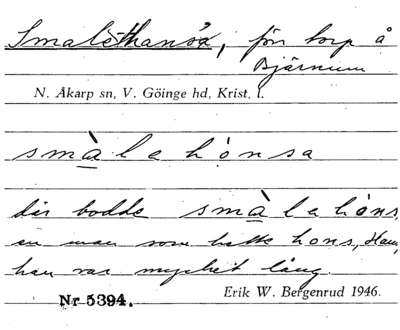 Smalehansa, förr torp å
Bjärnum
N. Åkarp sn, V. Göinge hd, Krist. l.
småla hònsa
där bodde småla hòns,
en man som hette Hons, Han,
han var mycket lång.
Nr 5394.
Erik W. Bergenrud 1946.